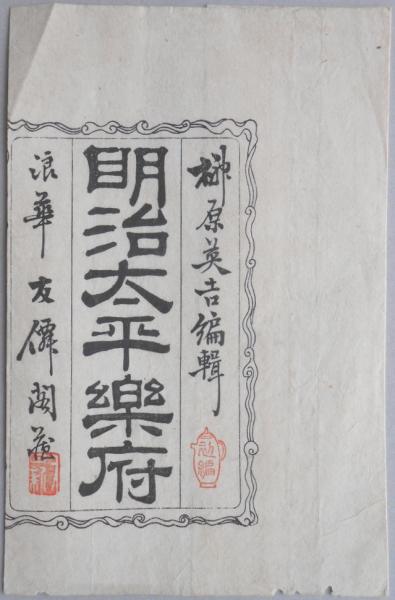 榊原英吉編輯
初編
明治太平樂府
浪華友僊閣蔵